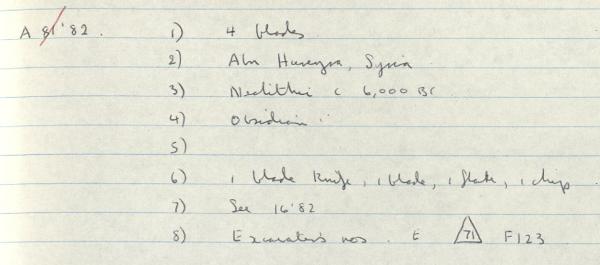 A 81'82. 1) 4 blades
2) Abu Hureyra, Syria
3) Neolithic c 6,000 BC
4) Obsidian
5)
6) 1 blade knife, 1 blade, 1 flake, 1 chip
7) See 16'82
8) Excavator's nos. E 71 F123